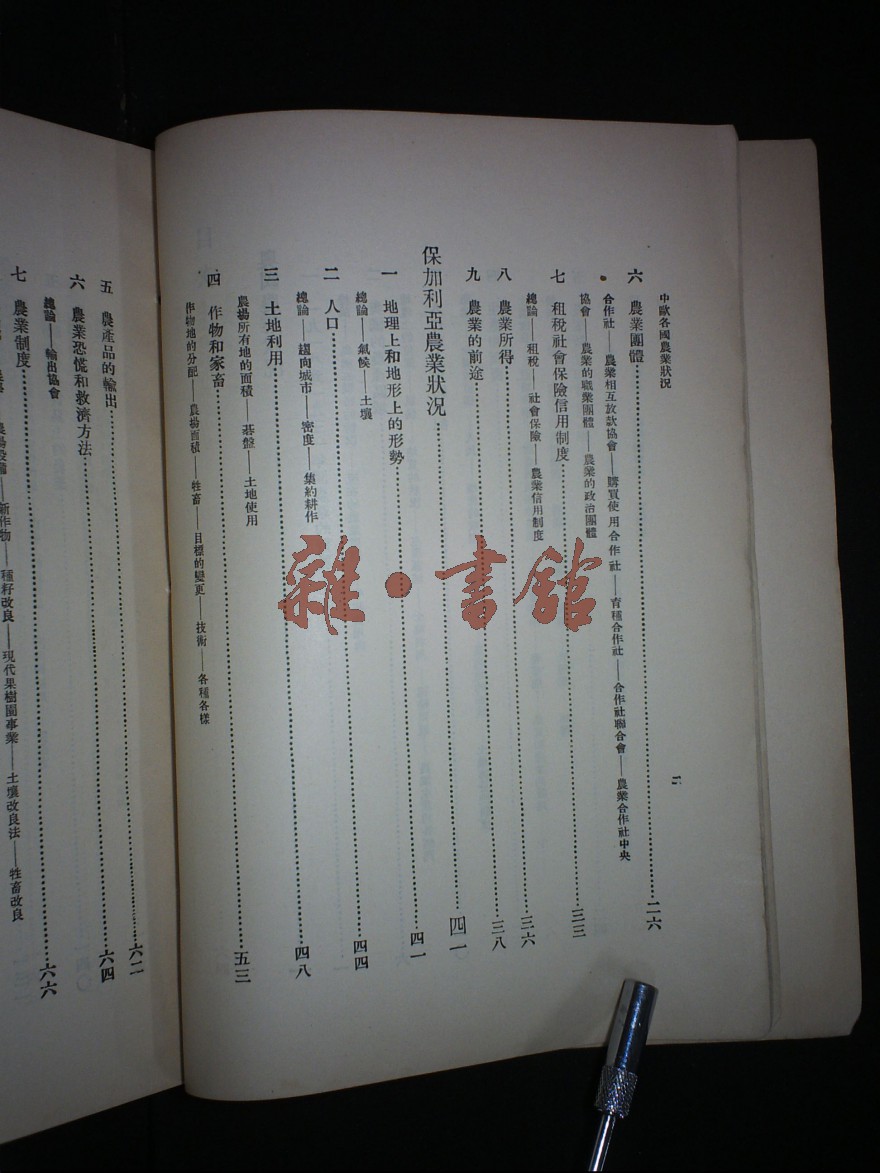 中歐各國農業狀況
二
六 農業團體……二六
合作社——農業相互放款協會——購買使用合作社——育種合作社——合作社聯合會——農業合作社中央
協會——農業的職業團體——農業的政治團體
七 租稅社會保險信用制度……三三
總論——租稅——社會保險——農業信用制度
八 農業所得……三六
九 農業的前途……三八
保加利亞農業狀況……四一
一 地理上和地形上的形勢……四一
總論——氣候——土壤
二 人口……四四
總論——趨向城市——密度——集約耕作
三 土地利用……四八
農場所有地的面積——碁盤——土地使用
四 作物和家畜……五三
作物地的分配——農場面積——牲畜——目標的變更——技術——各種各樣
五 農產品的輸出……六二
六 農業恐慌和救濟方法……六四
總論——輸出協會
七 農業制度……六六
新作物——種籽改良——現代果樹園事業——土壤改良法——牲畜改良
雜·書館